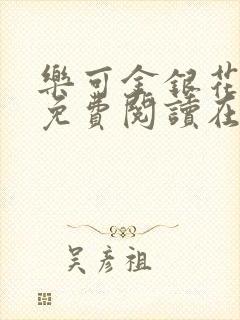 樂可金銀花
免費閱讀在
吴彥祖